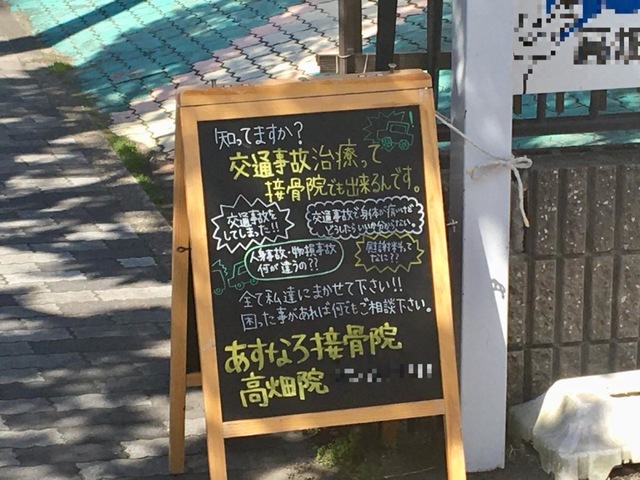 知ってますか?
交通事故治療って
接骨院でも出来るんです。
交通事故を
してしまった!!
交通事故で身体が痛いけど
どうしたらいいか分からない。
人身事故・物損事故
何が違うの??
慰謝料って
なに??
全て私達にまかせて下さい!!
困った事があれば何でもご相談下さい。
あすなろ接骨院
高畑院